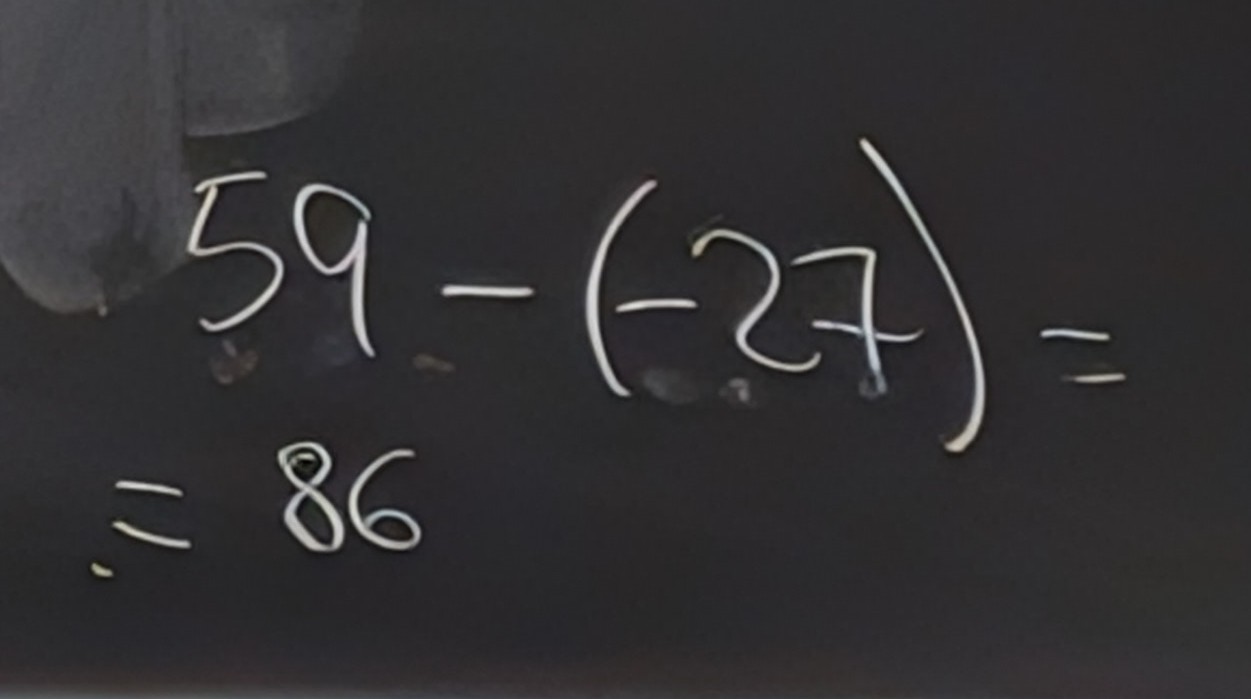 59 - (-27) =
= 86